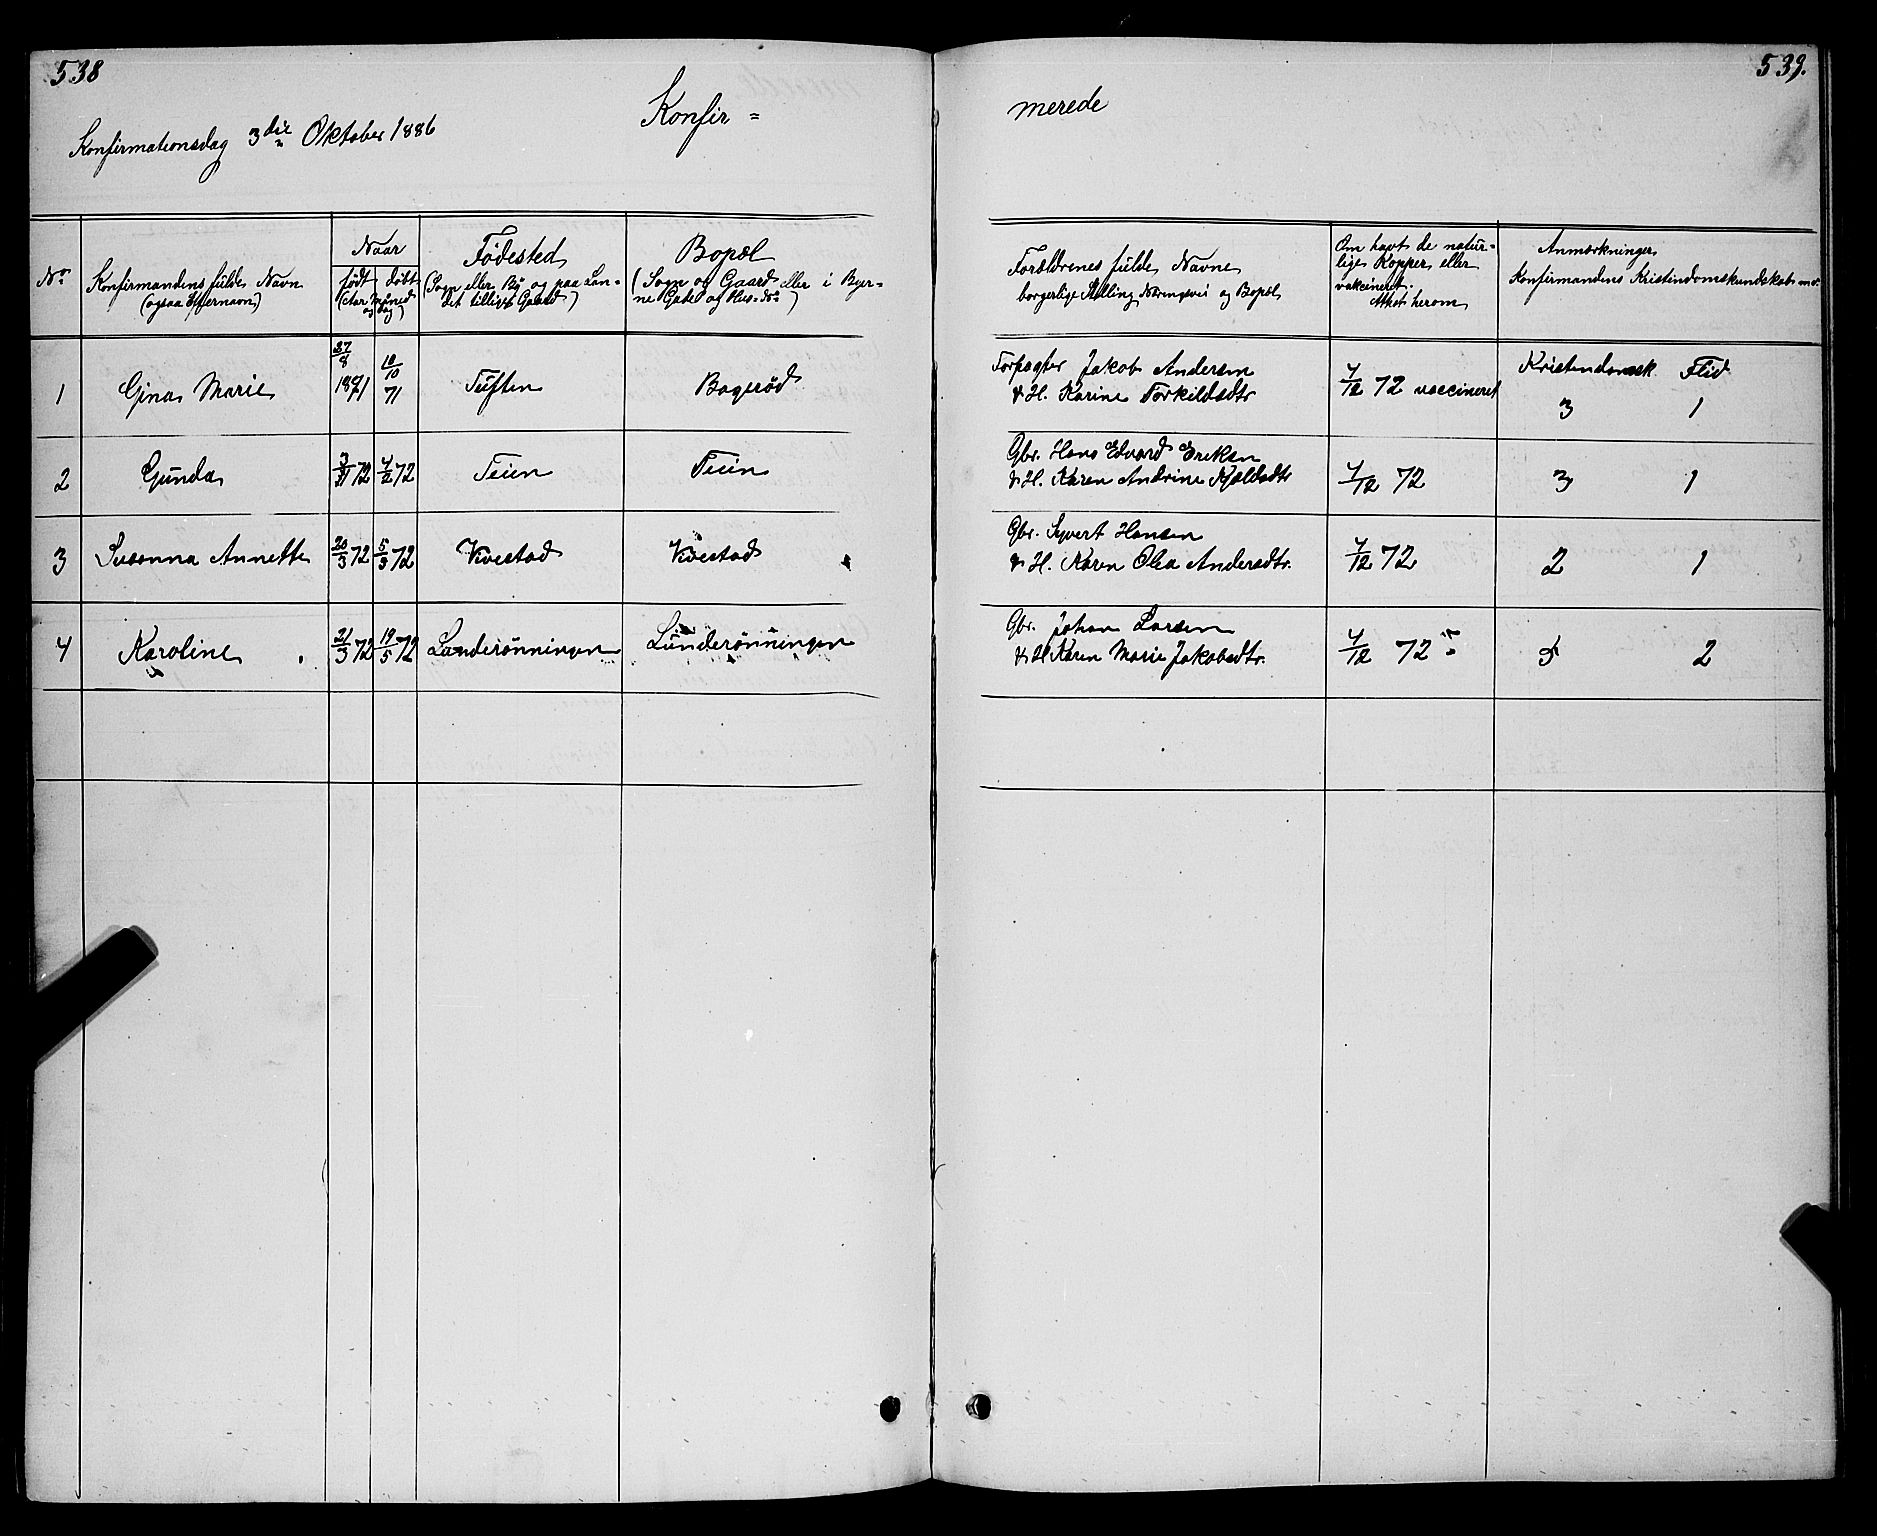 538
539.
Konfir =
merede
Konfirmationsdag 3die Oktober 1886
No
Konfirmandens fulde Navn
(ogsaa Efternavn)
Naar
født døbt
(Aar Maaned
og Dag)
Fødested
(Sogn eller By og paa Lan-
det tillige Gaard)
Bopæl
(Sogn og Gaard eller i Byer-
ne Gade og Hus-No)
Forældrenes fulde Navne
borgerlige Stilling, Næringsvei og Bopæl
Om havt de natur-
lige Kopper eller
vakcineret.
Attest herom
Anmærkninger
Konfirmandens Kristendomskundskab m. v.
1 Gina Marie 27/8 1871 10/10 71 Tuften Bogerød
Forpagter Jakob Andersen
& H. Karine Torkildsdtr 4/12 72 vaccineret
Kristendomsk Flid
3 1
2 Gunda 72 4/2 72 Teien Teien
Gbr. Hans Edvard Eriksen
& H. Karen Andrine Kjøldsdtr 4/12 72 3 1
3 Susanna Annette 20/3 72 5/5 72 Kvestad Kvestad
Gbr. Syvert Hansen
& H. Karen Olea Andersdtr. 4/12 72 2 1
4 Karoline 21/3 72 19/5 72 Lunderønningen Lunderønningen
Gbr. Johan Larsen
& H Karen Marie Jakobsdtr. 4/12 72 3 2